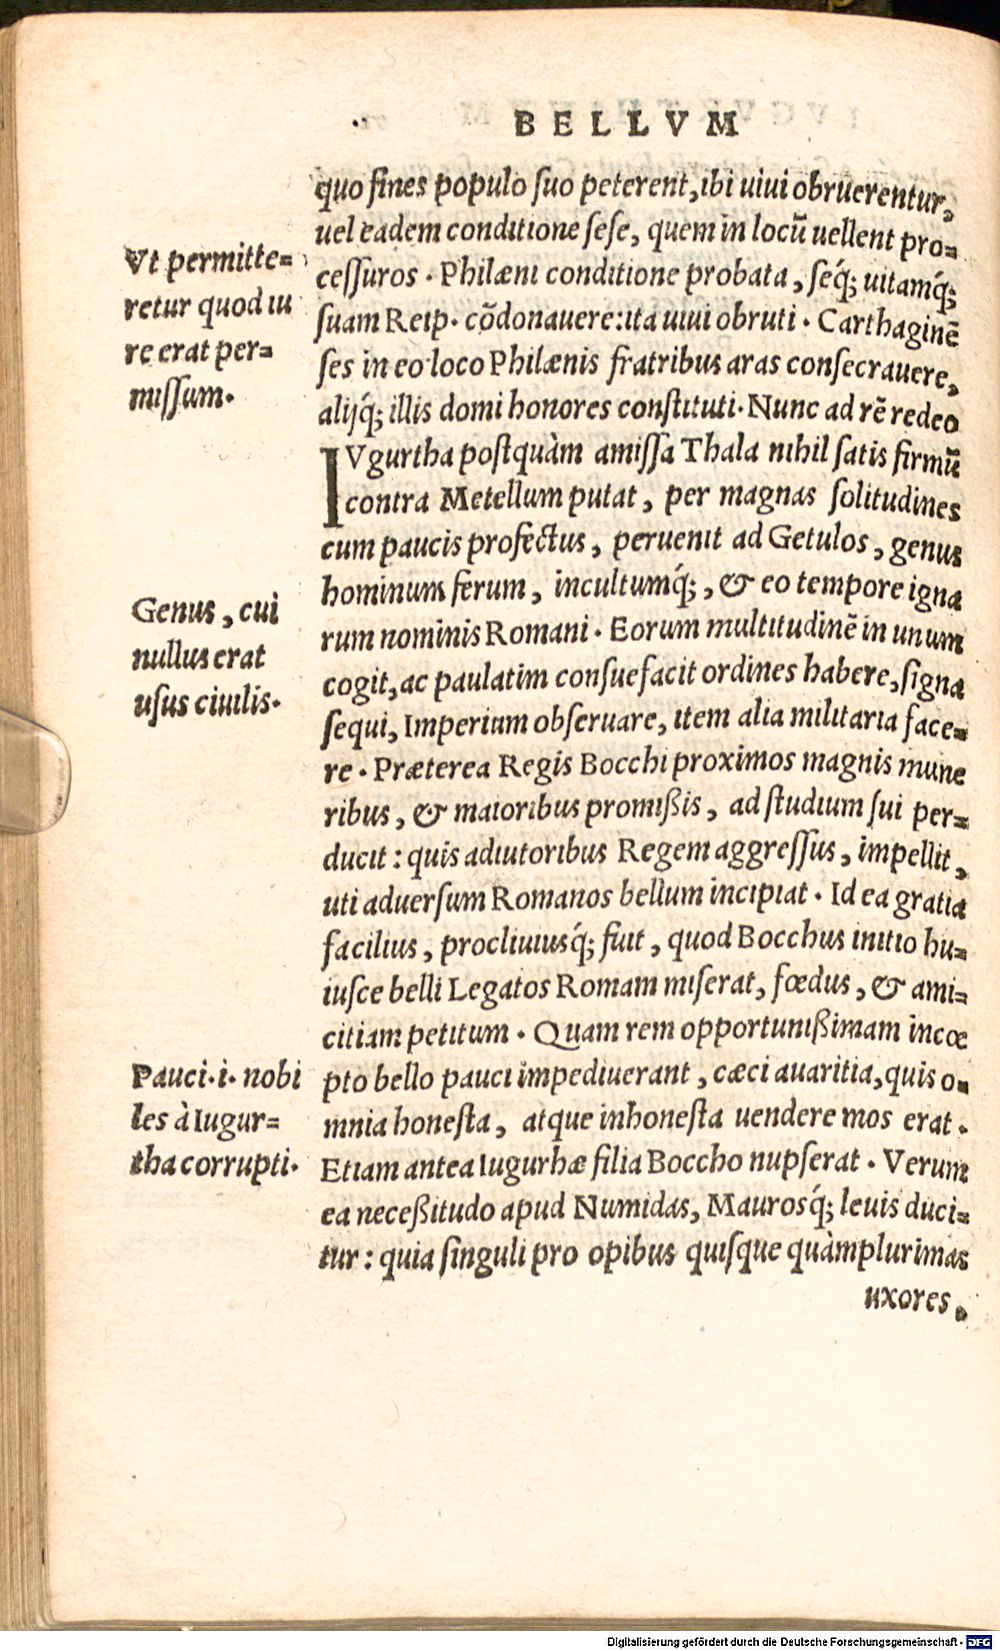 BELLVM
quo fines populo ſuo peterent, ibi uiui obruerentur,
uel eadem conditione ſeſe, quem in locū uellent pro=
ceſſuros. Philæni conditione probata, ſeq́; uitamq́;
ſuam Reip. cõdonauere: ita uiui obruti. Carthaginē
ſes in eo loco Philænis fratribus aras conſecrauere,
alijq́; illis domi honores conſtituti. Nunc ad rē redeo
IVgurtha poſtquàm amiſſa Thala nihil ſatis firmū
contra Metellum putat, per magnas ſolitudines
cum paucis profectus, peruenit ad Getulos, genus
hominum ferum, incultumq́;, & eo tempore igna
rum nominis Romani. Eorum multitudinē in unum
cogit, ac paulatim conſuefacit ordines habere, ſigna
ſequi, Imperium obſeruare, item alia militaria face=
re. Præterea Regis Bocchi proximos magnis mune
ribus, & maioribus promißis, ad ſtudium ſui per=
ducit: quis adiutoribus Regem aggreſſus, impellit,
uti aduerſum Romanos bellum incipiat. Id ea gratia
facilius, procliuiusq́; fuit, quod Bocchus initio hu=
iuſce belli Legatos Romam miſerat, fœdus, & ami=
citiam petitum. Quam rem opportunißimam incœ
pto bello pauci impediuerant, cæci auaritia, quis o=
mnia honeſta, atque inhoneſta uendere mos erat.
Etiam antea Iugurhæ filia Boccho nupſerat. Verum
ea neceßitudo apud Numidas, Maurosq́; leuis duci=
tur: quia ſinguli pro opibus quiſque quàmplurimas
uxores,
Vt permitte=
retur quod iu
re erat per=
miſſum.
Genus, cui
nullus erat
uſus ciuilis.
Pauci.i. nobi
les à Iugur=
tha corrupti.
Digitalisierung gefördert durch die Deutsche Forschungsgemeinschaft - DFG